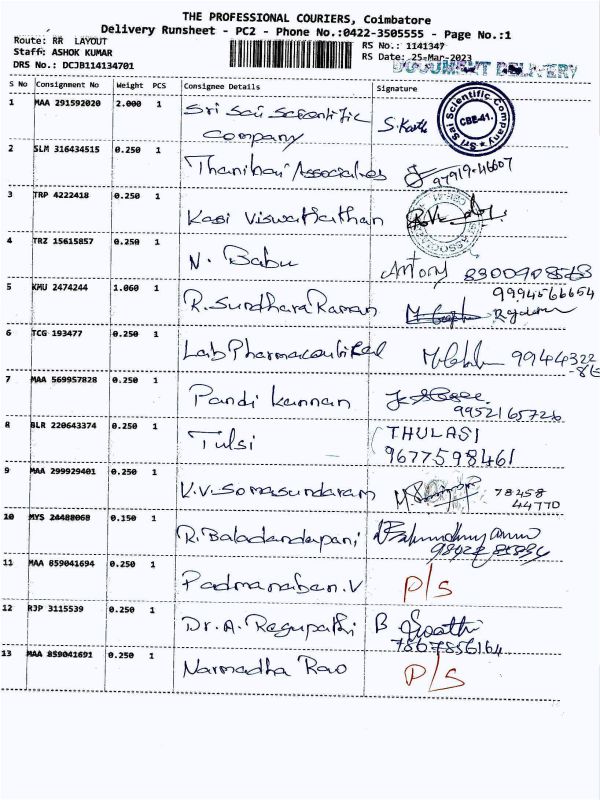 THE PROFESSIONAL COURIERS, Coimbatore
Delivery Runsheet - PC2 - Phone No.:0422-3505555 - Page No.:1
Route: RR LAYOUT
RS No.: 1141347
Staff: ASHOK KUMAR
RS Date: 25-Mar-2023
DRS No.: DCJB114134701
DOCUMENT DELIVERY
S No Consignment No Weight PCS Consignee Details Signature
1 MAA 291592020 2.000 1 Sri Sai Scientific S.Karth
Company
Sri Sai Scientific Company CBE-41.
2 SLM 316434515 0.250 1 Thanihai Associates 97919-46607
3 TRP 4222418 0.250 1 Kasi Viswanathan
4 TRZ 15615857 0.250 1 N. Babu Antony 8300908568
5 KMU 2474244 1.060 1 R.Sundhara Raman 9994566654
6 TCG 193477 0.250 1 Lab Pharmaceutical 99444322
-86
7 MAA 569957828 0.250 1 Pandi Kannan
9952165726
8 BLR 220643374 0.250 1 Tulsi THULASI
9677598461
9 MAA 299929401 0.250 1 V.V.Somasundaram 78458
44770
10 MYS 24488068 0.150 1 R.Baladandapani
11 MAA 859041694 0.250 1 Padmanaben.V P/S
12 RJP 3115539 0.250 1 Dr.A.Regupathi B Swathi
7867856164
13 MAA 859041691 0.250 1 Narmadha Rao P/S